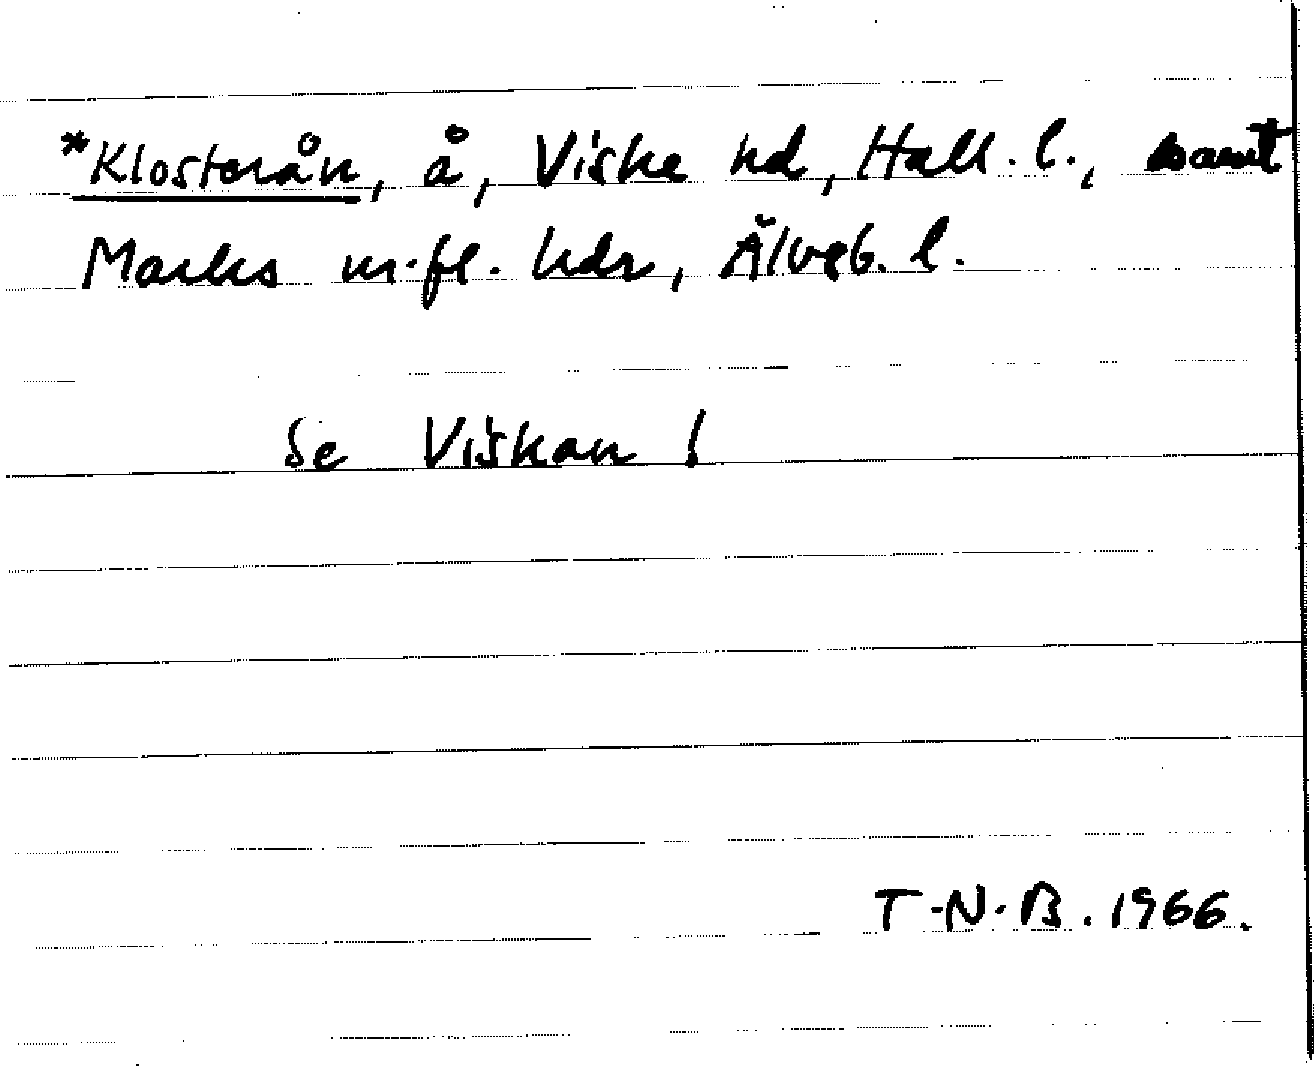 *Klosterån, å, Viske hd, Hall. l., samt
Marks m.fl. hdr, Älvsb. l.
Se Viskan!
T.N.B. 1966.